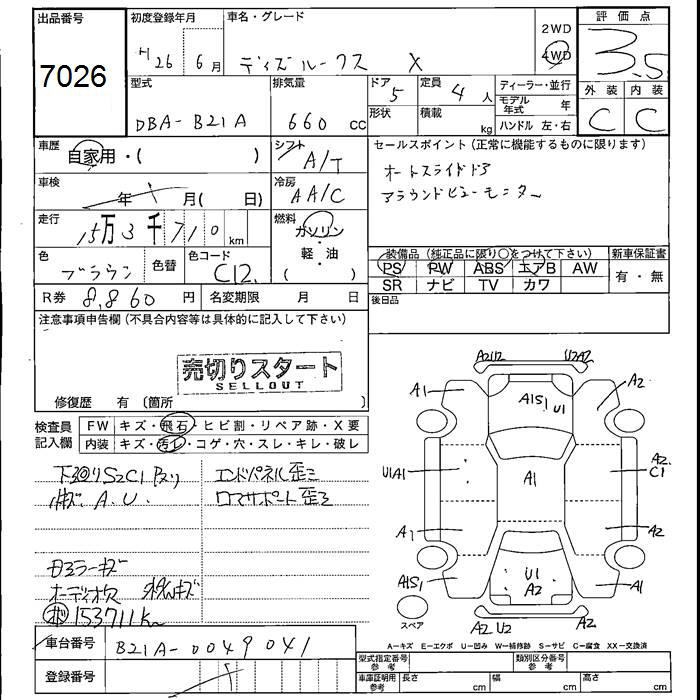 出品番号 初度登録年月 車名・グレード 2WD 評価点
7026 H26 6月 デイズルークス X 4WD 3.5
型式 排気量 ドア 5 定員 4人 ディーラー・並行 外装 内装
DBA-B21A 660cc 形状 積載 kg モデル年式 年 C C
ハンドル 左・右
車歴 自家用・( ) シフト A/T セールスポイント(正常に機能するものに限ります)
オートスライドドア
車検 年 月( 日) 冷房 AA/C アラウンドビューモニター
走行 15万3千710km 燃料 ガソリン・軽・油( )
色 ブラウン 色替 色コード C12 装備品(純正品に限り○をつけて下さい) 新車保証書
PS PW ABS エアB AW 有・無
R券 8,860円 名変期限 月 日 SR ナビ TV カワ
後日品
注意事項申告欄(不具合内容等は具体的に記入して下さい)
売切りスタート
SELLOUT
修復歴 有(箇所 )
検査員記入欄 FW キズ・飛石・ヒビ割・リペア跡・X要
内装 キズ・汚レ・コゲ・穴・スレ・キレ・破レ
下回りS2C1 エンドパネル歪ミ
A.U. コアサポート歪ミ
オーディオ欠
153711km
車台番号 B21A-0049041
登録番号
A2U2 U2A2
A1 A1S1 U1 A2
U1A1 A1 A2
C1
A1 A2
A1S1 U1 A1
A2
スペア A2U2 A2
A-キズ E-エクボ U-凹み W-補修跡 S-サビ C-腐食 XX-交換済
型式指定番号 参考 類別区分番号 参考
車庫証明用 参考 長さ cm 幅 cm 高さ cm